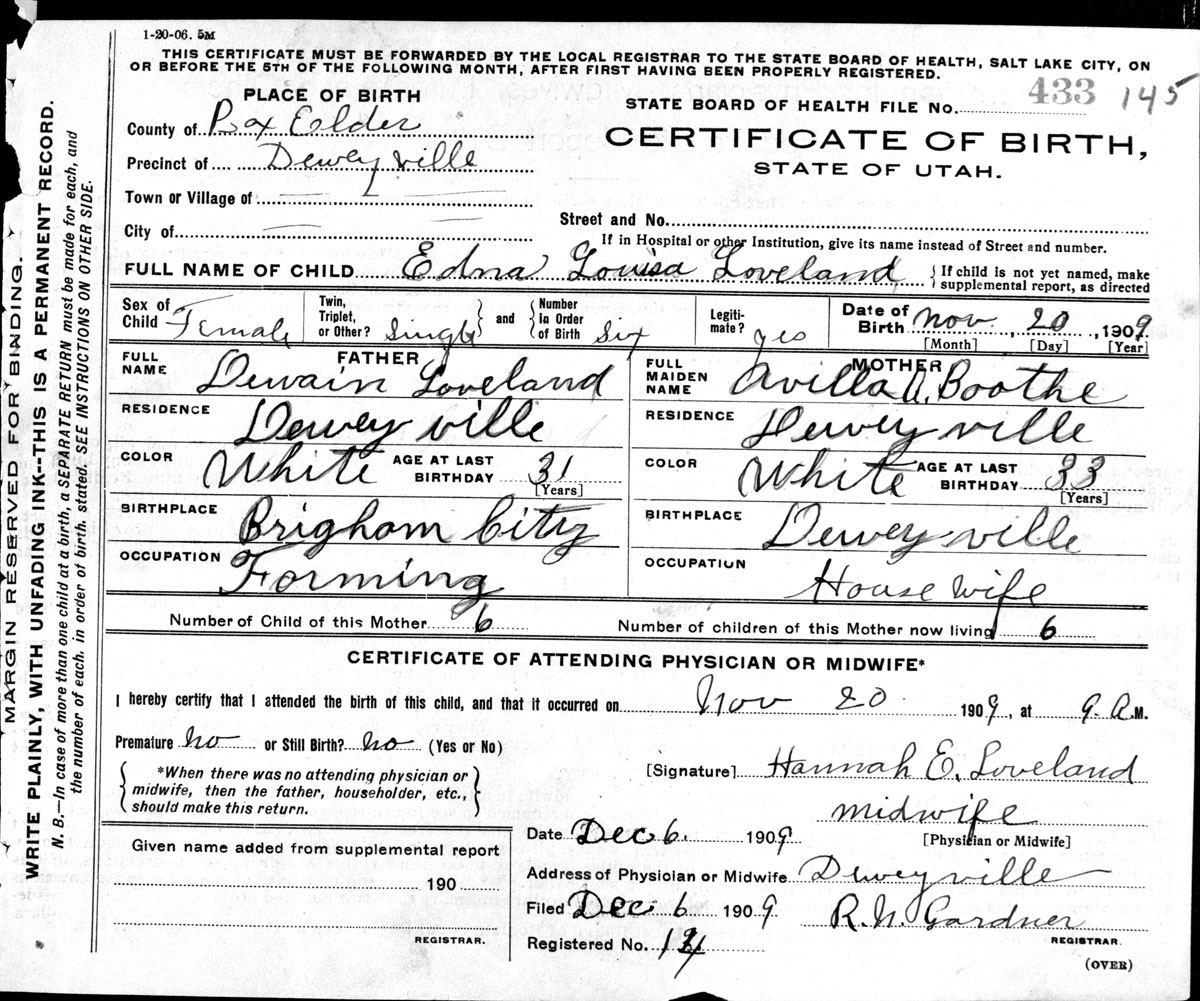 1-20-06. 5M
THIS CERTIFICATE MUST BE FORWARDED BY THE LOCAL REGISTRAR TO THE STATE BOARD OF HEALTH, SALT LAKE CITY, ON
OR BEFORE THE 5TH OF THE FOLLOWING MONTH, AFTER FIRST HAVING BEEN PROPERLY REGISTERED.
PLACE OF BIRTH
STATE BOARD OF HEALTH FILE No. 433 145
County of Box Elder
CERTIFICATE OF BIRTH,
Precinct of Deweyville
STATE OF UTAH.
Town or Village of
Street and No.
City of
If in Hospital or other Institution, give its name instead of Street and number.
FULL NAME OF CHILD Edna Louisa Loveland { If child is not yet named, make supplemental report, as directed
Sex of Child Female Twin, Triplet, or Other? Single } and { Number in Order of Birth Six Legiti-mate? yes Date of Birth Nov. 20, 1909 [Month] [Day] [Year]
FATHER MOTHER
FULL NAME Dewain Loveland FULL MAIDEN NAME Avilla A. Boothe
RESIDENCE Deweyville RESIDENCE Deweyville
COLOR White AGE AT LAST BIRTHDAY 31 [Years] COLOR White AGE AT LAST BIRTHDAY 33 [Years]
BIRTHPLACE Brigham City BIRTHPLACE Deweyville
OCCUPATION Forming OCCUPATION House wife
Number of Child of this Mother 6 Number of children of this Mother now living 6
CERTIFICATE OF ATTENDING PHYSICIAN OR MIDWIFE*
I hereby certify that I attended the birth of this child, and that it occurred on Nov 20 1909, at 9 A.M.
Premature no or Still Birth? no (Yes or No)
{ *When there was no attending physician or
midwife, then the father, householder, etc.,
should make this return. }
[Signature] Hannah E. Loveland
midwife
[Physician or Midwife]
Date Dec 6. 1909
Given name added from supplemental report
190
REGISTRAR.
Address of Physician or Midwife Deweyville
Filed Dec 6 1909 R. N. Gardner
Registered No. REGISTRAR.
(OVER)
MARGIN RESERVED FOR BINDING.
WRITE PLAINLY, WITH UNFADING INK--THIS IS A PERMANENT RECORD.
N. B.—In case of more than one child at a birth, a SEPARATE RETURN must be made for each, and
the number of each, in order of birth, stated. SEE INSTRUCTIONS ON OTHER SIDE.